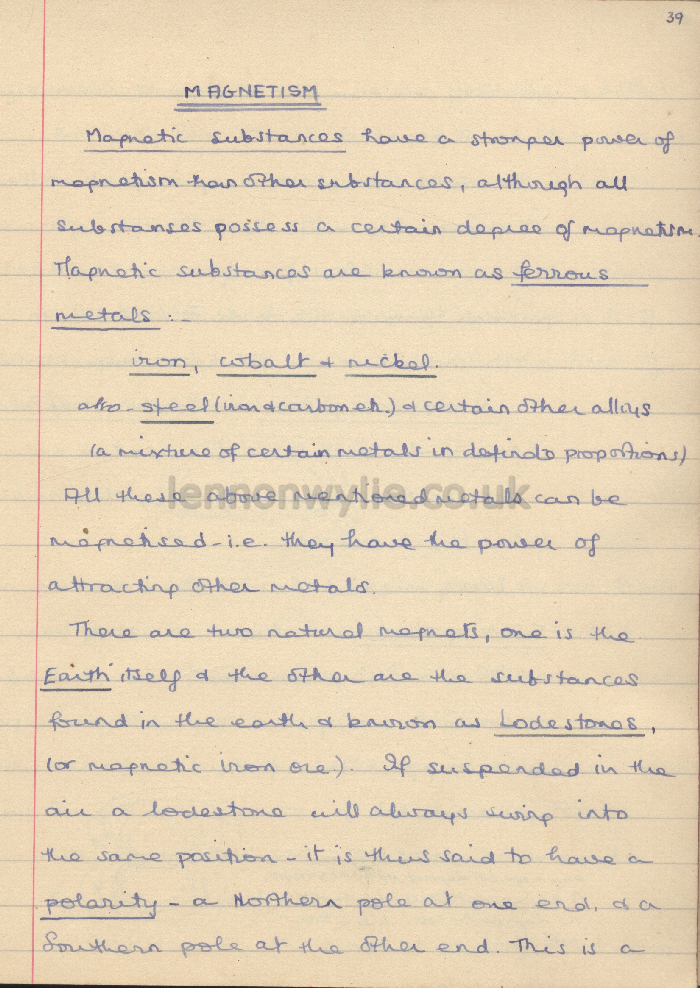 39
MAGNETISM
Magnetic substances have a stronger power of
magnetism than other substances, although all
substanses possess a certain degree of magnetism.
Magnetic substances are known as ferrous
metals :-
iron, cobalt & nickel.
also - steel (iron & carbon etc.) & certain other alloys
(a mixture of certain metals in definite proportions)
lennonwylie.co.uk
All these above mentioned metals can be
magnetised - i.e. they have the power of
attracting other metals.
There are two natural magnets, one is the
Earth itself & the other are the substances
found in the earth & known as Lodestones,
(or magnetic iron ore). If suspended in the
air a lodestone will always swing into
the same position - it is thus said to have a
polarity - a Northern pole at one end, & a
Southern pole at the other end. This is a